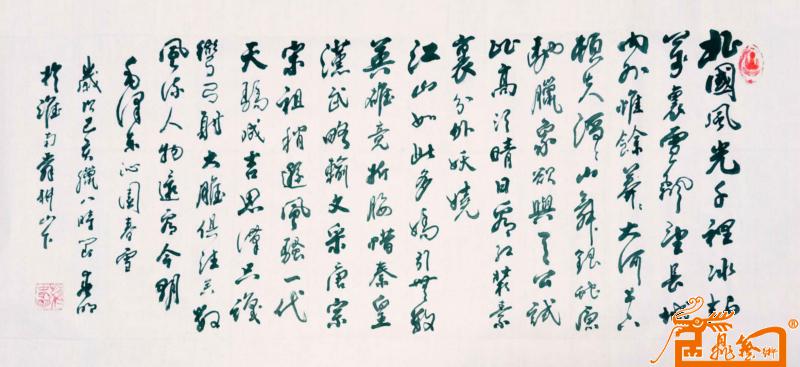 北國風光千裡冰封
萬裏雪飄望長城
內外惟餘莽莽大河上下
頓失滔滔山舞銀蛇原
馳臘象欲與天公試
比高須晴日看紅裝素
裹分外妖嬈
江山如此多嬌引無數
英雄竞折腰惜秦皇
漢武略輸文采唐宗
宋祖稍遜風騷一代
天驕成吉思漢只識
彎弓射大雕俱往矣數
風流人物還看今朝
毛澤東沁園春雪
歲次己亥臘八時
於淮南舜耕山下